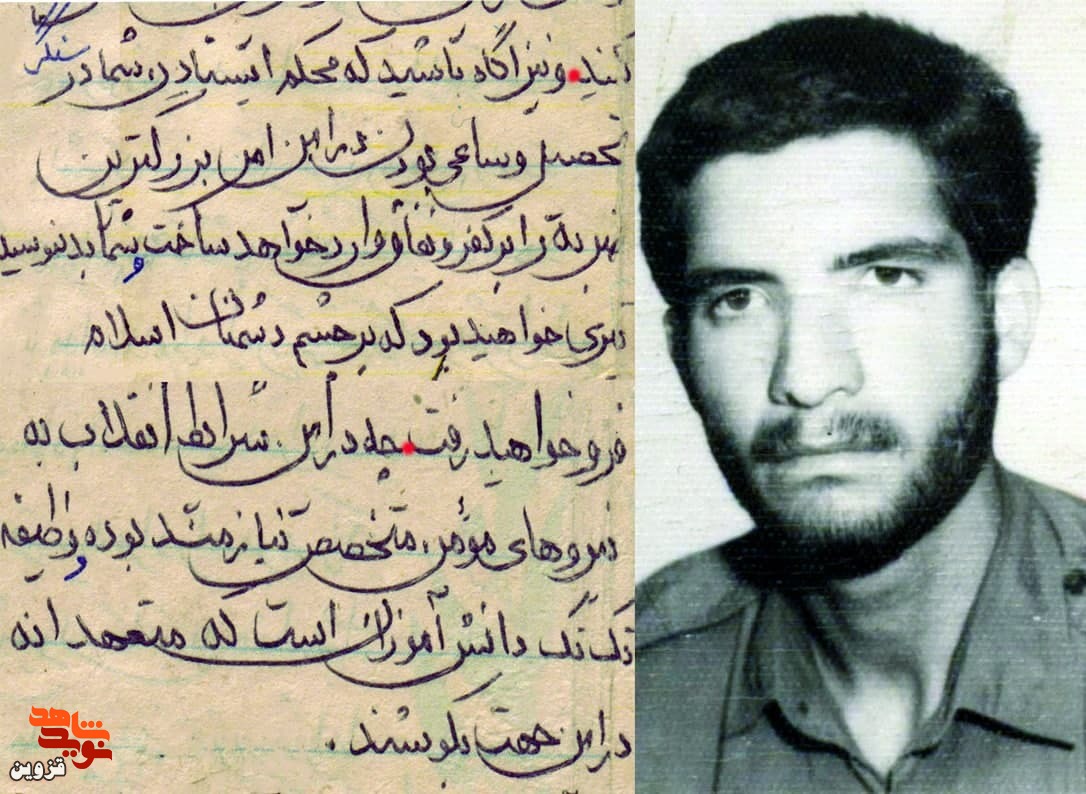 کنید. و نیز آگاه باشید که محکم ایستادن شما در سنگر
تحصیل و ساعی بودن در این امر بزرگترین
ضربه را بر کفر و نفاق وارد خواهد ساخت و شما بدینوسیله
تیری خواهید بود که بر چشم دشمنان اسلام
فرو خواهید رفت. چه در این شرایط انقلاب به
نیروهای مؤمن، متخصص نیازمند بوده و وظیفه
تک تک دانش آموزان است که متعهدانه
در این جهت بکوشند.
نوید شاهد
قزوین